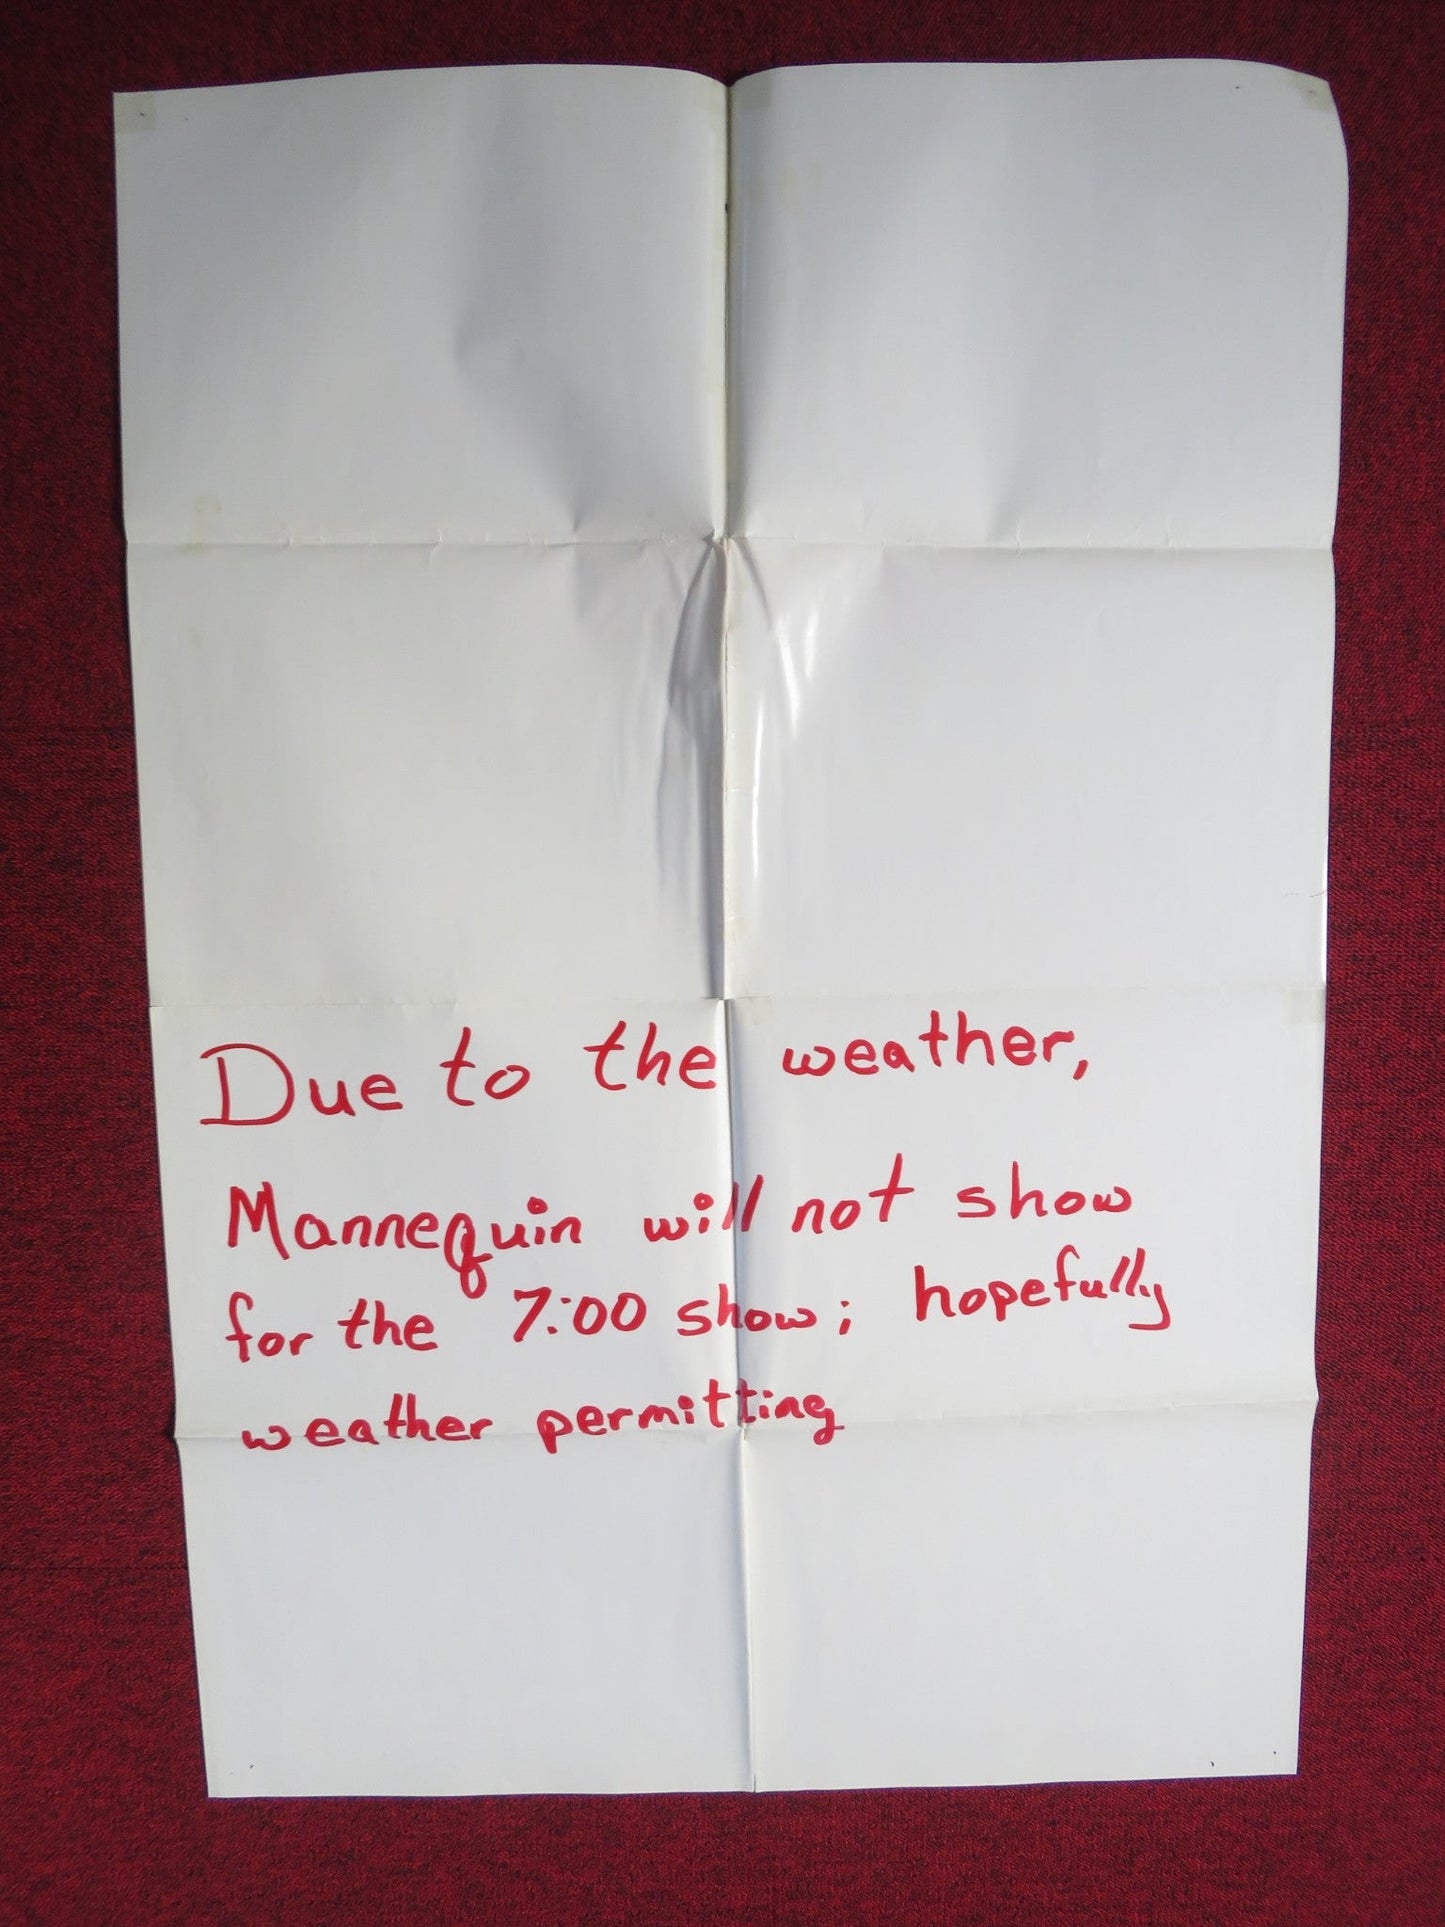 Due to the weather,
Mannequin will not show
for the 7:00 show; hopefully
weather permitting